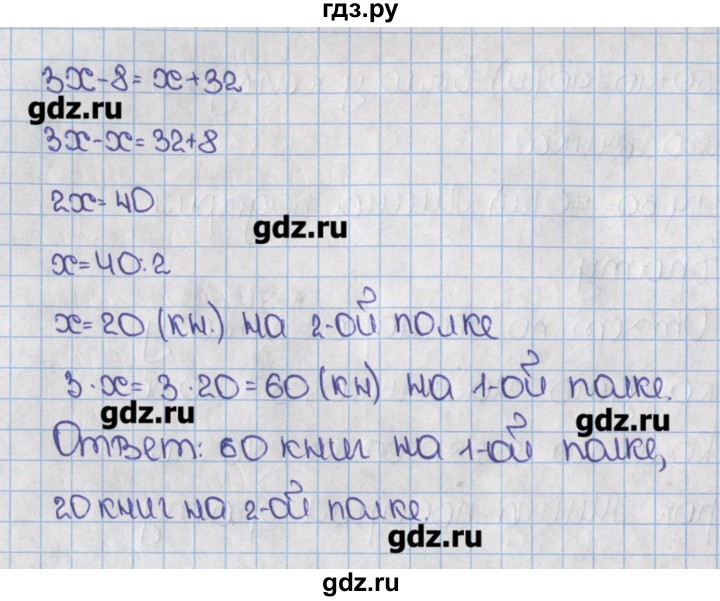 гдз.ру
3x-8=x+32
gdz.ru
3x-x=32+8
2x=40
gdz.ru
x=40:2
x=20 (кн.) на 2-ой полке
3·x=3·20=60 (кн) на 1-ой полке.
gdz.ru
gdz.ru
Ответ: 60 книг на 1-ой полке,
20 книг на 2-ой полке.
gdz.ru
gdz.ru